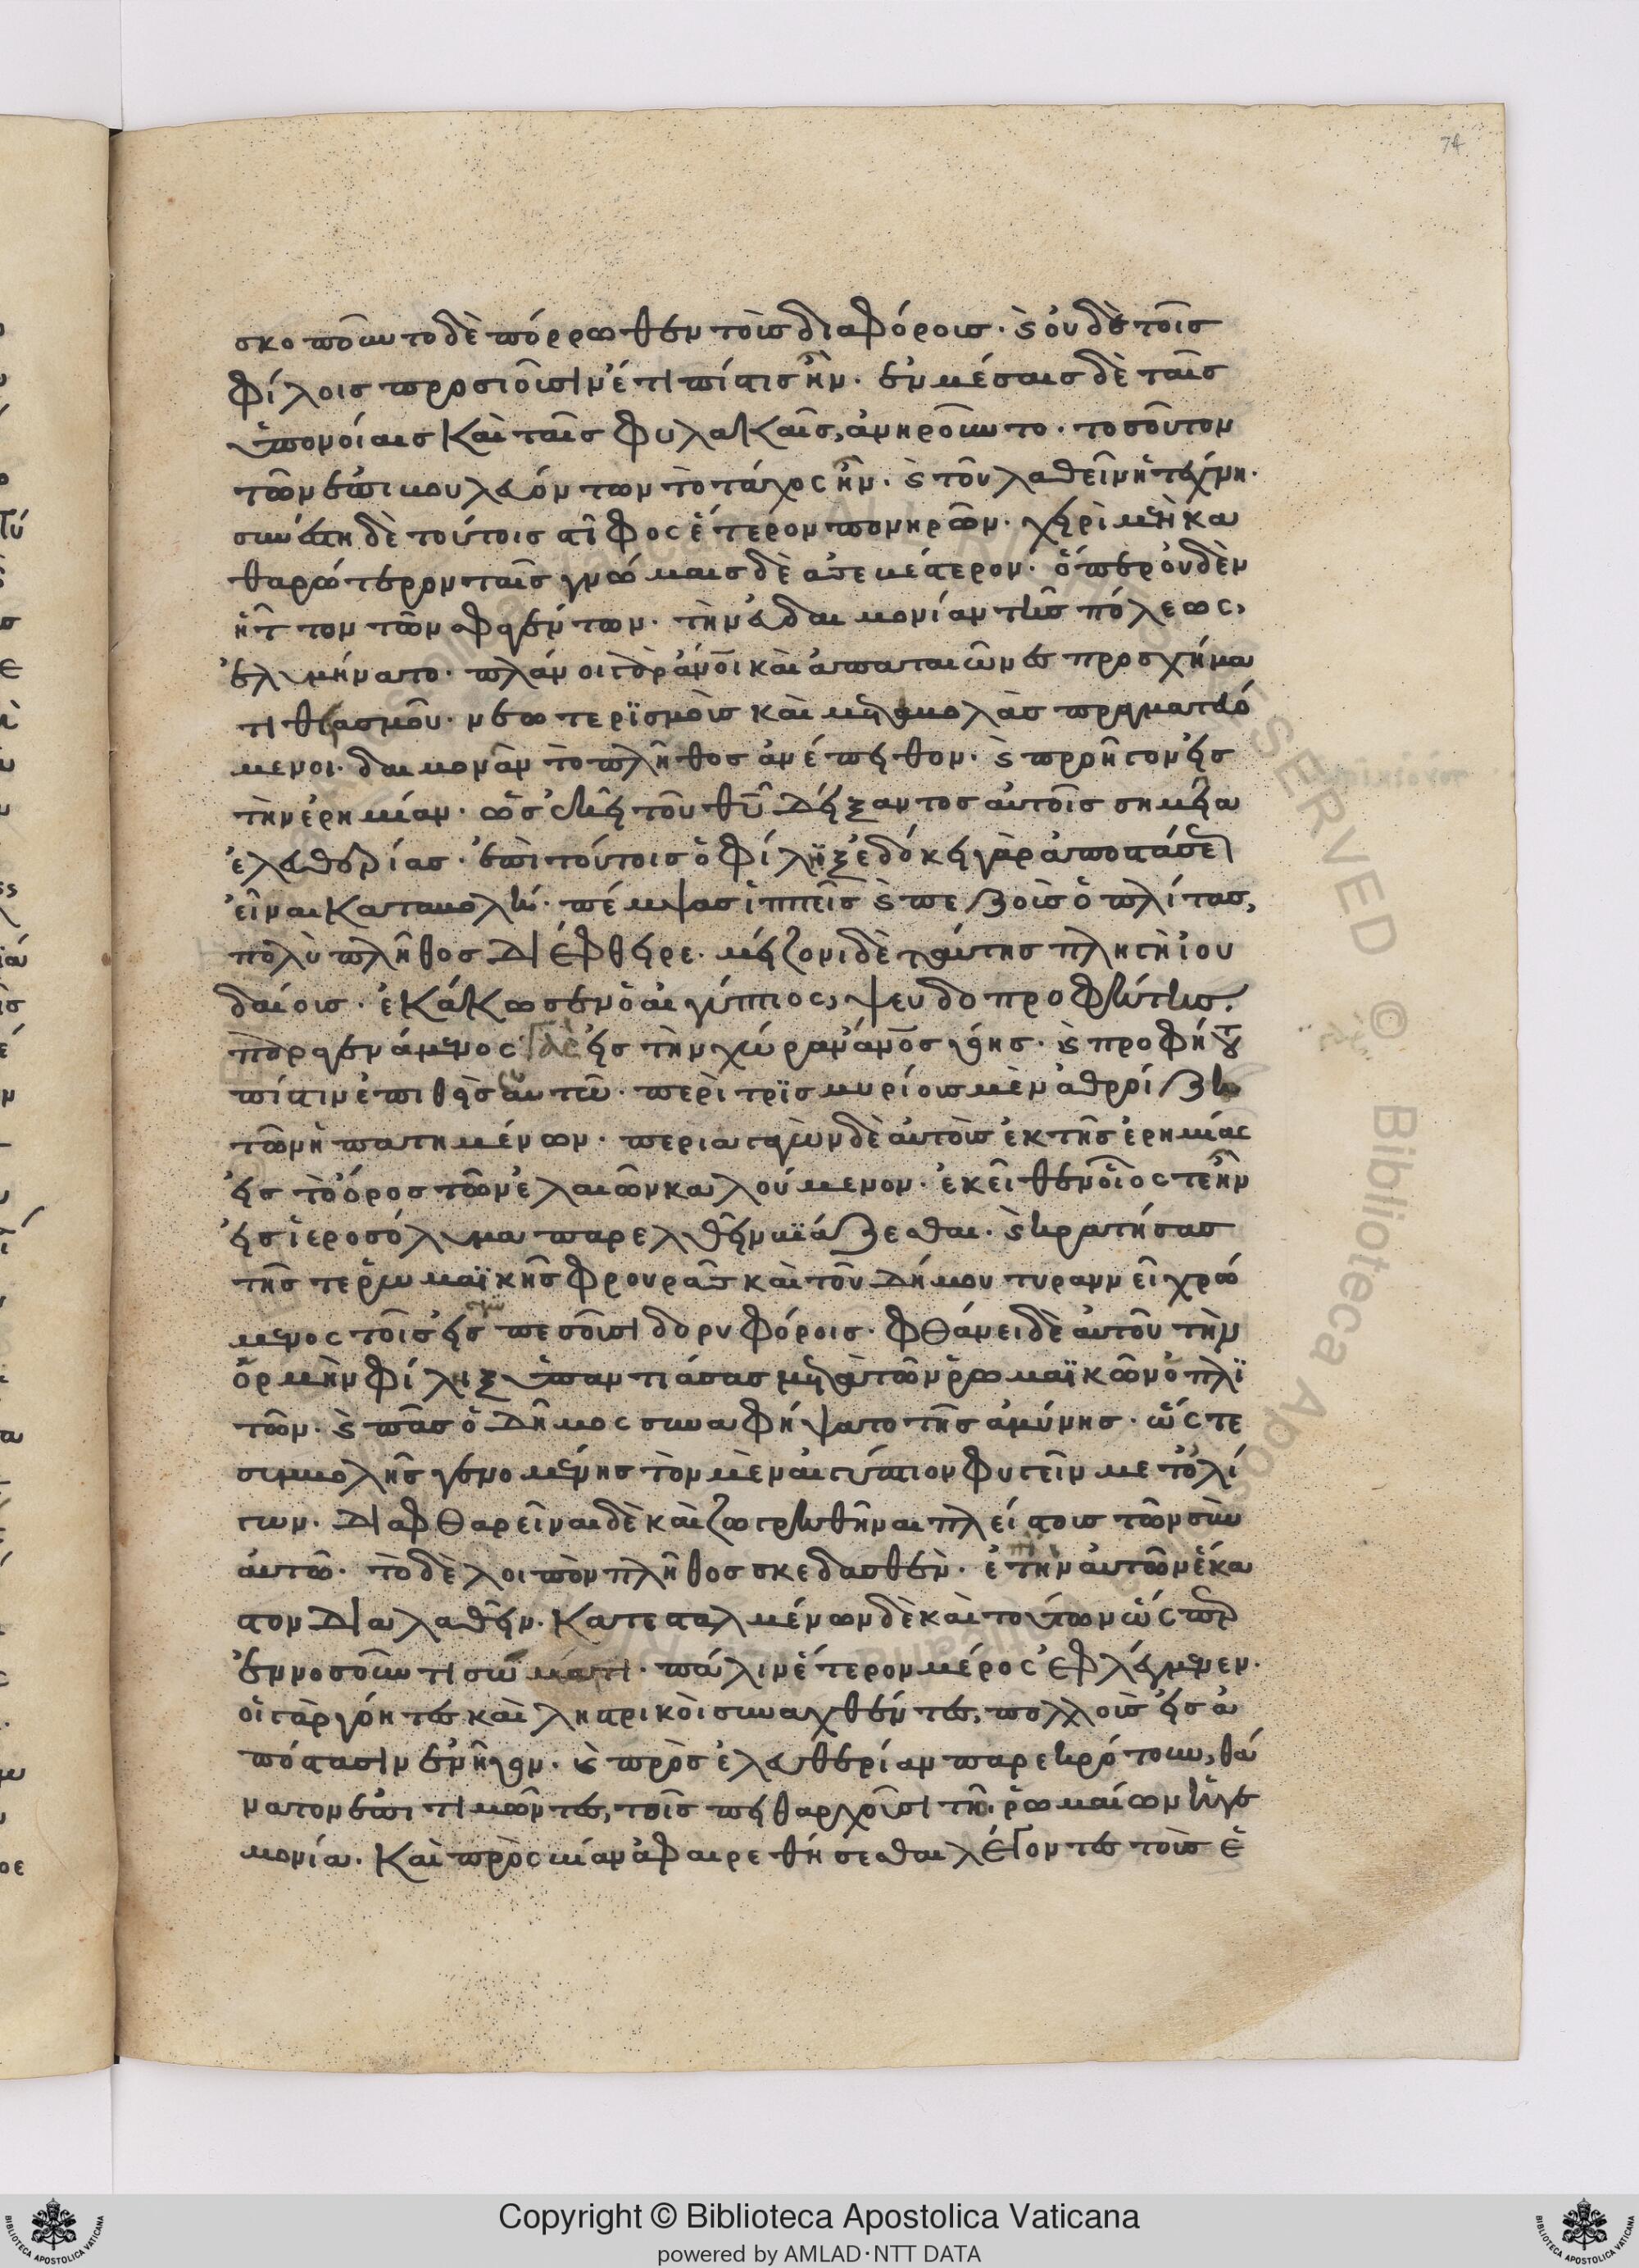 74
σκοποῦντο δὲ πόρρωθεν τοὺς διαφόρους· ϛ οὐδὲ τοῖς
φίλοις προσιοῦσιν ἔτι πίστις ἦν· ἐν μέσαις δὲ ταῖς
ὑπονοίαις καὶ ταῖς φυλακαῖς, ἀνηροῦντο· τοσοῦτον
τῶν ἐπιβουλευόντων τὸ τάχος ἦν· ϛ τοῦ λαθεῖν ἡ τέχνη·
συνέστη δὲ τούτοις στῖφος ἕτερον πονηρῶν· χειρὶ μὲν κα
θαρώτερον ταῖς γνώμαις δὲ ἀσεβέστερον· ὅπερ οὐδὲν
ἧττον τῶν σφαγέντων· τὴν εὐδαιμονίαν τῆς πόλεως,
ἐλυμήνατο· πλάνοι γὰρ ἄνοι καὶ ἀπαταιῶνες προσχήμα
τι θειασμοῦ· νεωτερισμοὺς καὶ μεταβολὰς πραγματευό
μενοι· δαιμονᾶν τὸ πλῆθος ἀνέπειθον· ϛ προῆγον εἰς
τὴν ἐρημίαν· ὡς ἐκεῖ τοῦ θυ δείξαντος αὐτοῖς σημεῖα
ἐλευθερίας· ἐπὶ τούτοις ὁ Φίληξ ἐδόκει γὰρ ἀποστάσε
εἶναι καταβολή· πέμψας ἱππεῖς ϛ πεζοὺς ὁπλίτας,
πολὺ πλῆθος διέφθειρε· μείζονι δὲ ταύτης πληγῆ ἰου
δαίους· ἐκάκωσεν ὁ αἰγύπτιος, ψευδοπροφήτης·
παραγενάμενος γὰρ εἰς τὴν χώραν ἄνος γόης· ϛ προφήτου
πίστιν ἐπιθεὶς αὑτῶ· περὶ τρισμυρίους μὲν ἀθροίζει
τῶν ἠπατημένων· περιαγαγὼν δὲ αὐτοὺς ἐκ τῆς ἐρημίας
εἰς τὸ ὄρος τῶν ἐλαιῶν καλούμενον· ἐκεῖθεν οἷός τε ἦν
εἰς ἱεροσόλυμα παρελθεῖν βιάζεσθαι· ϛ κρατήσας
τῆς τε ῥωμαϊκῆς φρουρᾶς καὶ τοῦ δήμου τυραννεῖ χρώ
μενος τοῖς εἰσπεσοῦσι δορυφόροις· φθάνει δὲ αὐτοῦ τὴν
ὁρμὴν Φίλιξ ὑπαντιάσας μετὰ τῶν ῥωμαϊκῶν ὁπλι
τῶν· ϛ πᾶς ὁ δῆμος συναφήψατο τῆς ἀμύνης· ὥστε
συμβολῆς γενομένης τὸν μὲν αἰγύπτιον φυγεῖν μετ' ὀλί
γων· διαφθαρεῖναι δὲ καὶ ζωγρηθῆναι πλείστους τῶν σὺν
αὐτῶ· τὸ δὲ λοιπὸν πλῆθος σκεδασθὲν· ἐ τὴν αὐτῶν ἕκα
στον διαλαθεῖν· κατεσταλμένων δὲ καὶ τούτων ὥσπερ
ἐν νοσοῦντι σώματι· πάλιν ἕτερον μέρος ἐφλέγμαινεν·
οἱ γὰρ γόητες καὶ ληστρικοὶ συναχθέντες, πολλοὺς εἰς ἀ
πόστασιν ἐνῆγον· ϛ πρὸς ἐλευθερίαν παρεκρότουν, θά
νατον ἐπιτιμῶντες, τοῖς πειθαρχοῦσι τῆ ῥωμαίων ἡγε
μονία· καὶ πρὸς βίαν ἀφαιρεθήσεσθαι λέγοντες τοὺς ἑ
Copyright © Biblioteca Apostolica Vaticana
powered by AMLAD·NTT DATA